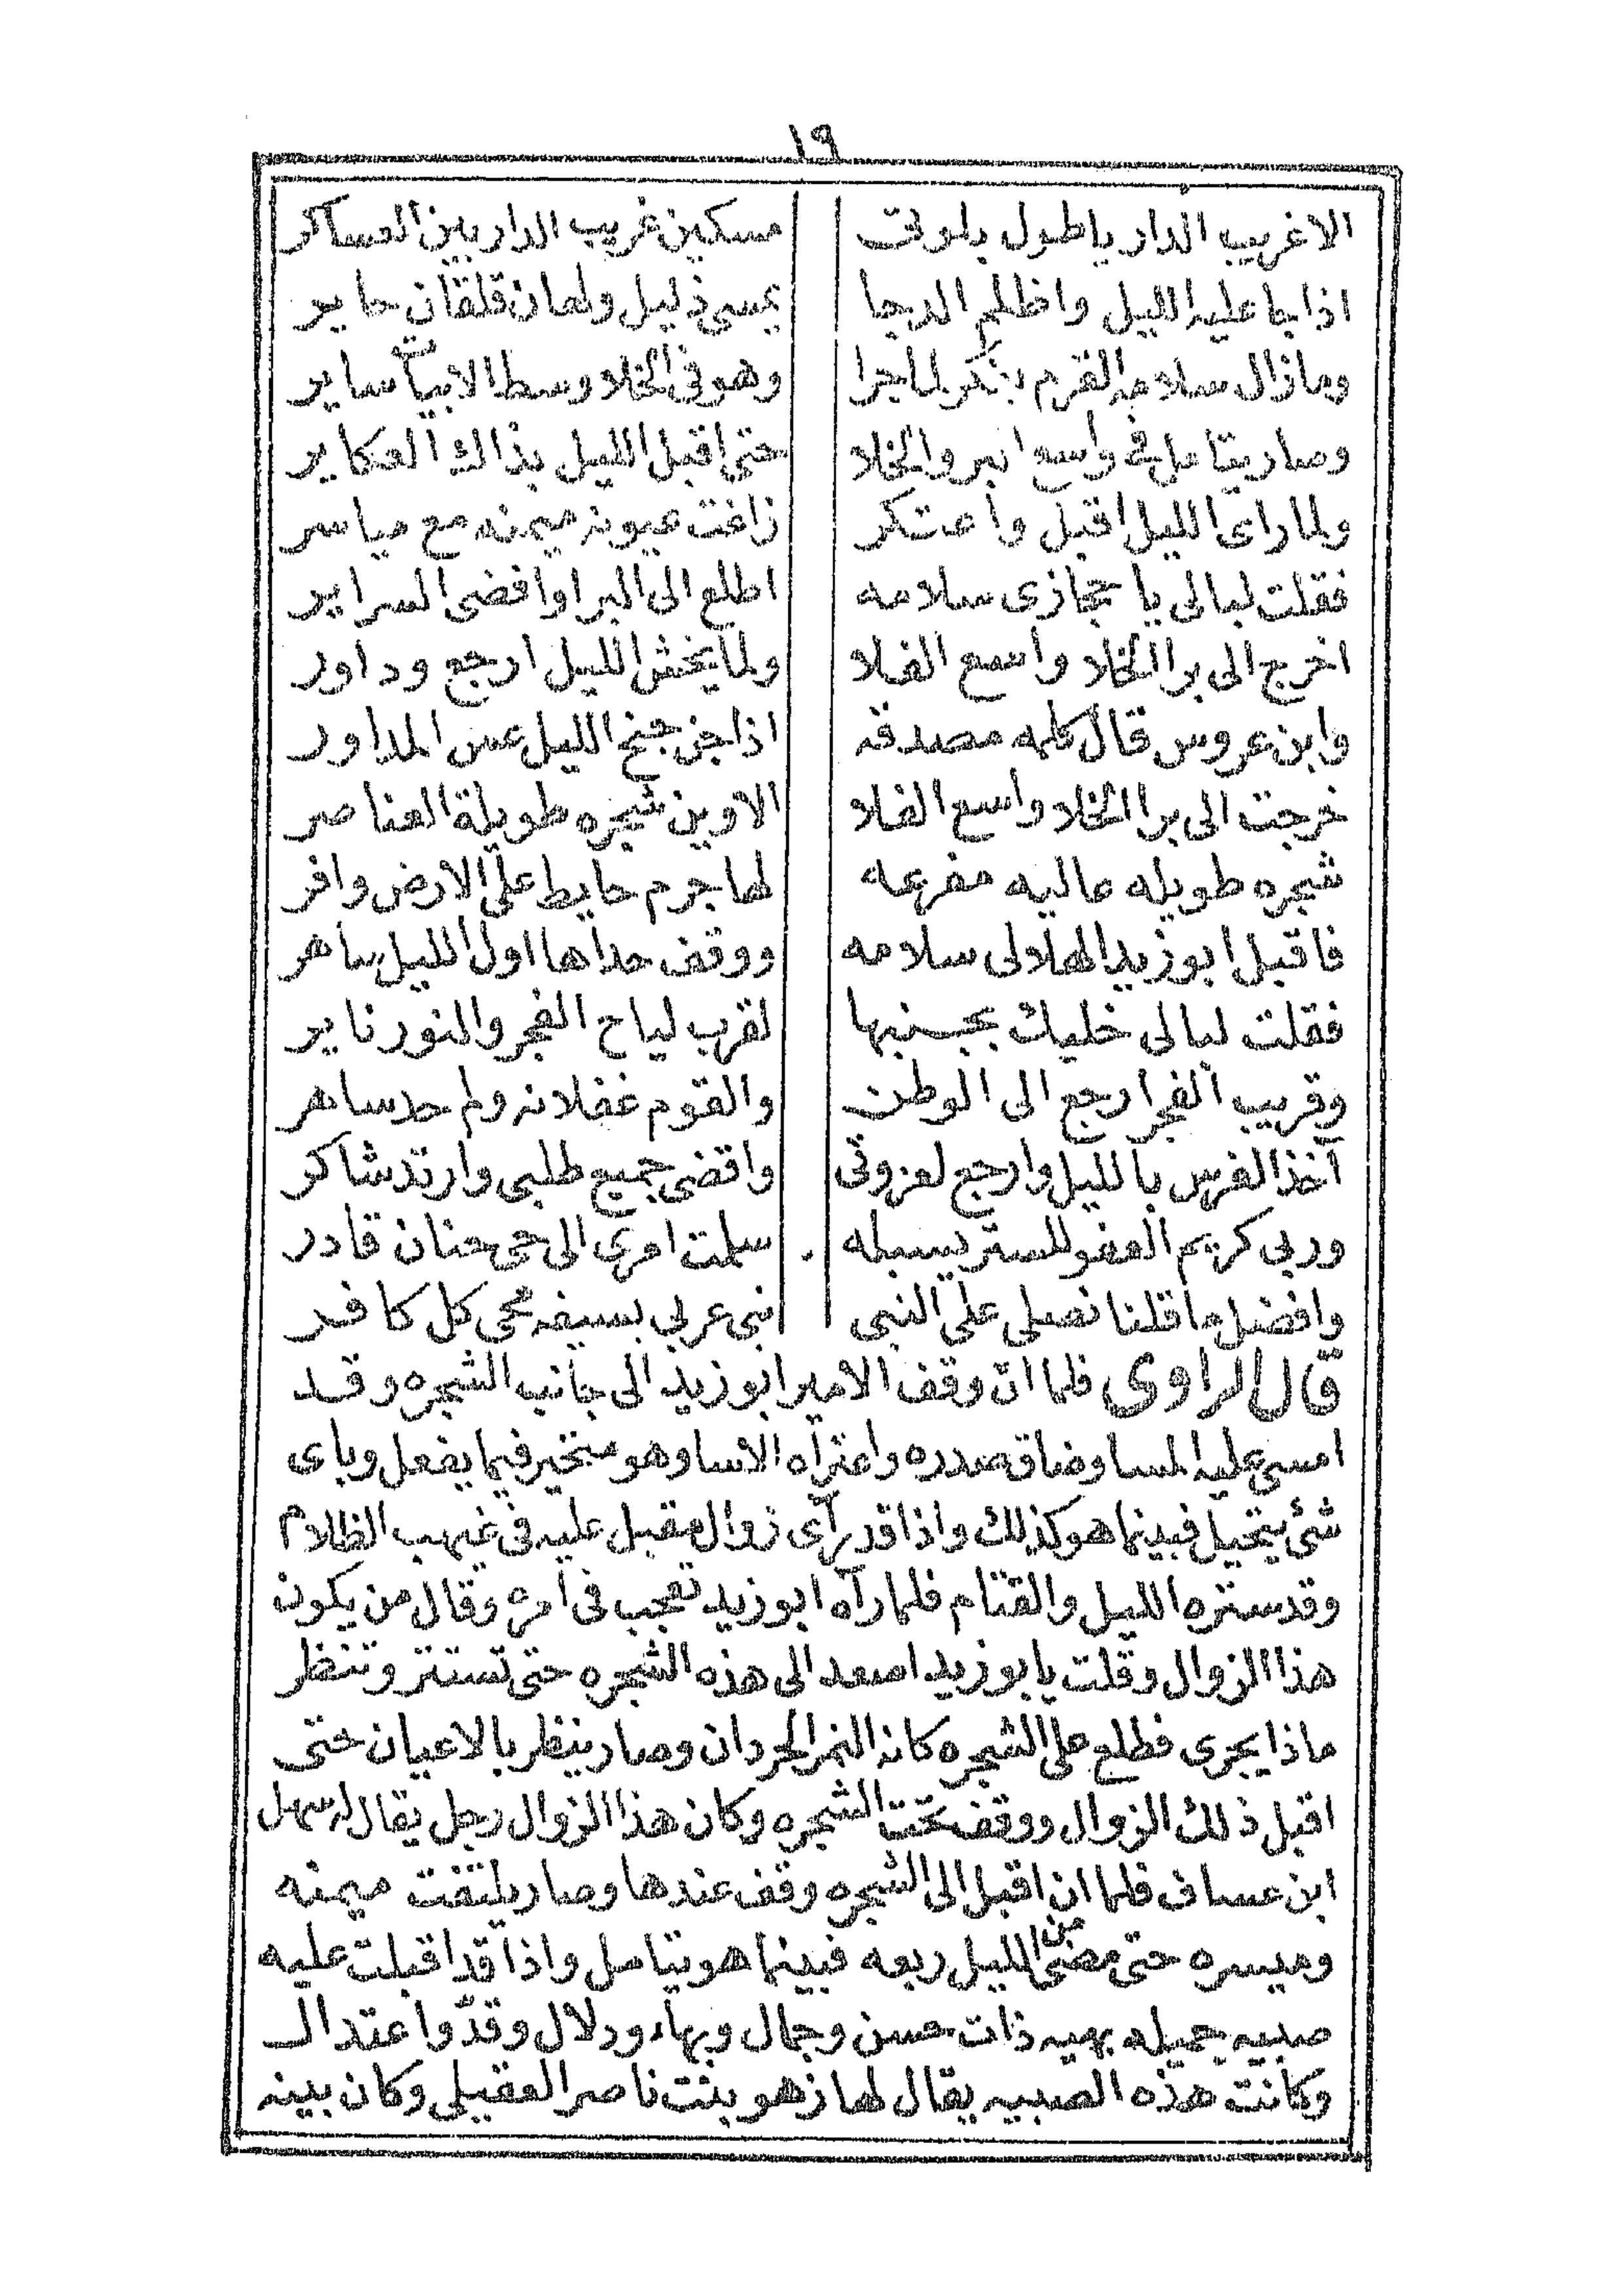 ١٩
الاغريب الدار ياطول بلوتى مسكين غريب الدار بين العساكر
اذا جا عليه الليل واظلم الدجا يمسى ذليل ولهان قلقان حاير
وما زال سلامه القرم بنكر لما جرا وهو فى الخلا وسط الابيات ساير
وصار يتامل فى واسع البر والخلا حتى اقبل الليل بذاك العكاير
ولما راى الليل اقبل واعتكر زاغت عيونه ميمنه مع مياسر
فقلت لبالى يا حجازى سلامه اطلع الى البر اوافضى السراير
اخرج الى بر الخلا واسع الفلا ولما يخش الليل ارجع وداور
وابن عروس قال كلمه مصدقه اذا جن جنح الليل عس المداور
خرجت الى بر الخلا واسع الفلا الاوين شجره طويلة العناصر
شجره طويله عاليه مفرعمه لها جرم حايط على الارض وافر
فاقبل ابوزيد الهلالى سلامه ووقف حداها اول الليل ساهر
فقلت لبالى خليك بجنبها لقرب لياح الفجر والنور ناير
وقريب الفجر ارجع الى الوطن والقوم غفلانه ولم حد ساهر
آخذ الفرس بالليل وارجع لعزوتى واقضى جميع طلبى وارتد شاكر
وربى كريم العفو للستر يسبله سلمت امرى الى حى حنان قادر
وافضل ما قلنا نصلى على النبى نبى عربى بسيفه محى كل كافر
قال الراوى فلما ان وقف الامير ابوزيد الى جانب الشجره وقد
امسى عليه المسا وضاق صدره واعتراه الاسا وهو متحير فيما يفعل وباى
شئ يتحيل فبينما هو كذلك واذا قد رآى زوال مقبل عليه فى غيهب الظلام
وقد ستره الليل والقتام فلما رآه ابوزيد تعجب فى امره وقال من يكون
هذا الزوال وقلت يابوزيد اصعد الى هذه الشجره حتى تستتر وتنظر
ماذا يجرى فطلع على الشجره كانه النمر الحردان وصار ينظر بالاعيان حتى
اقبل ذلك الزوال ووقف تحت الشجره وكان هذا الزوال رجل يقال له سهل
ابن عساف فلما ان اقبل الى الشجره وقف عندها وصار يلتفت ميمنه
وميسره حتى مضى من الليل ربعه فبينما هو يتامل واذا قد اقبلت عليه
صبيه جميله بهيه ذات حسن وجمال وبهاء ودلال وقد واعتدال
وكانت هذه الصبيه يقال لها زهو بنت ناصر العقيلى وكان بينه